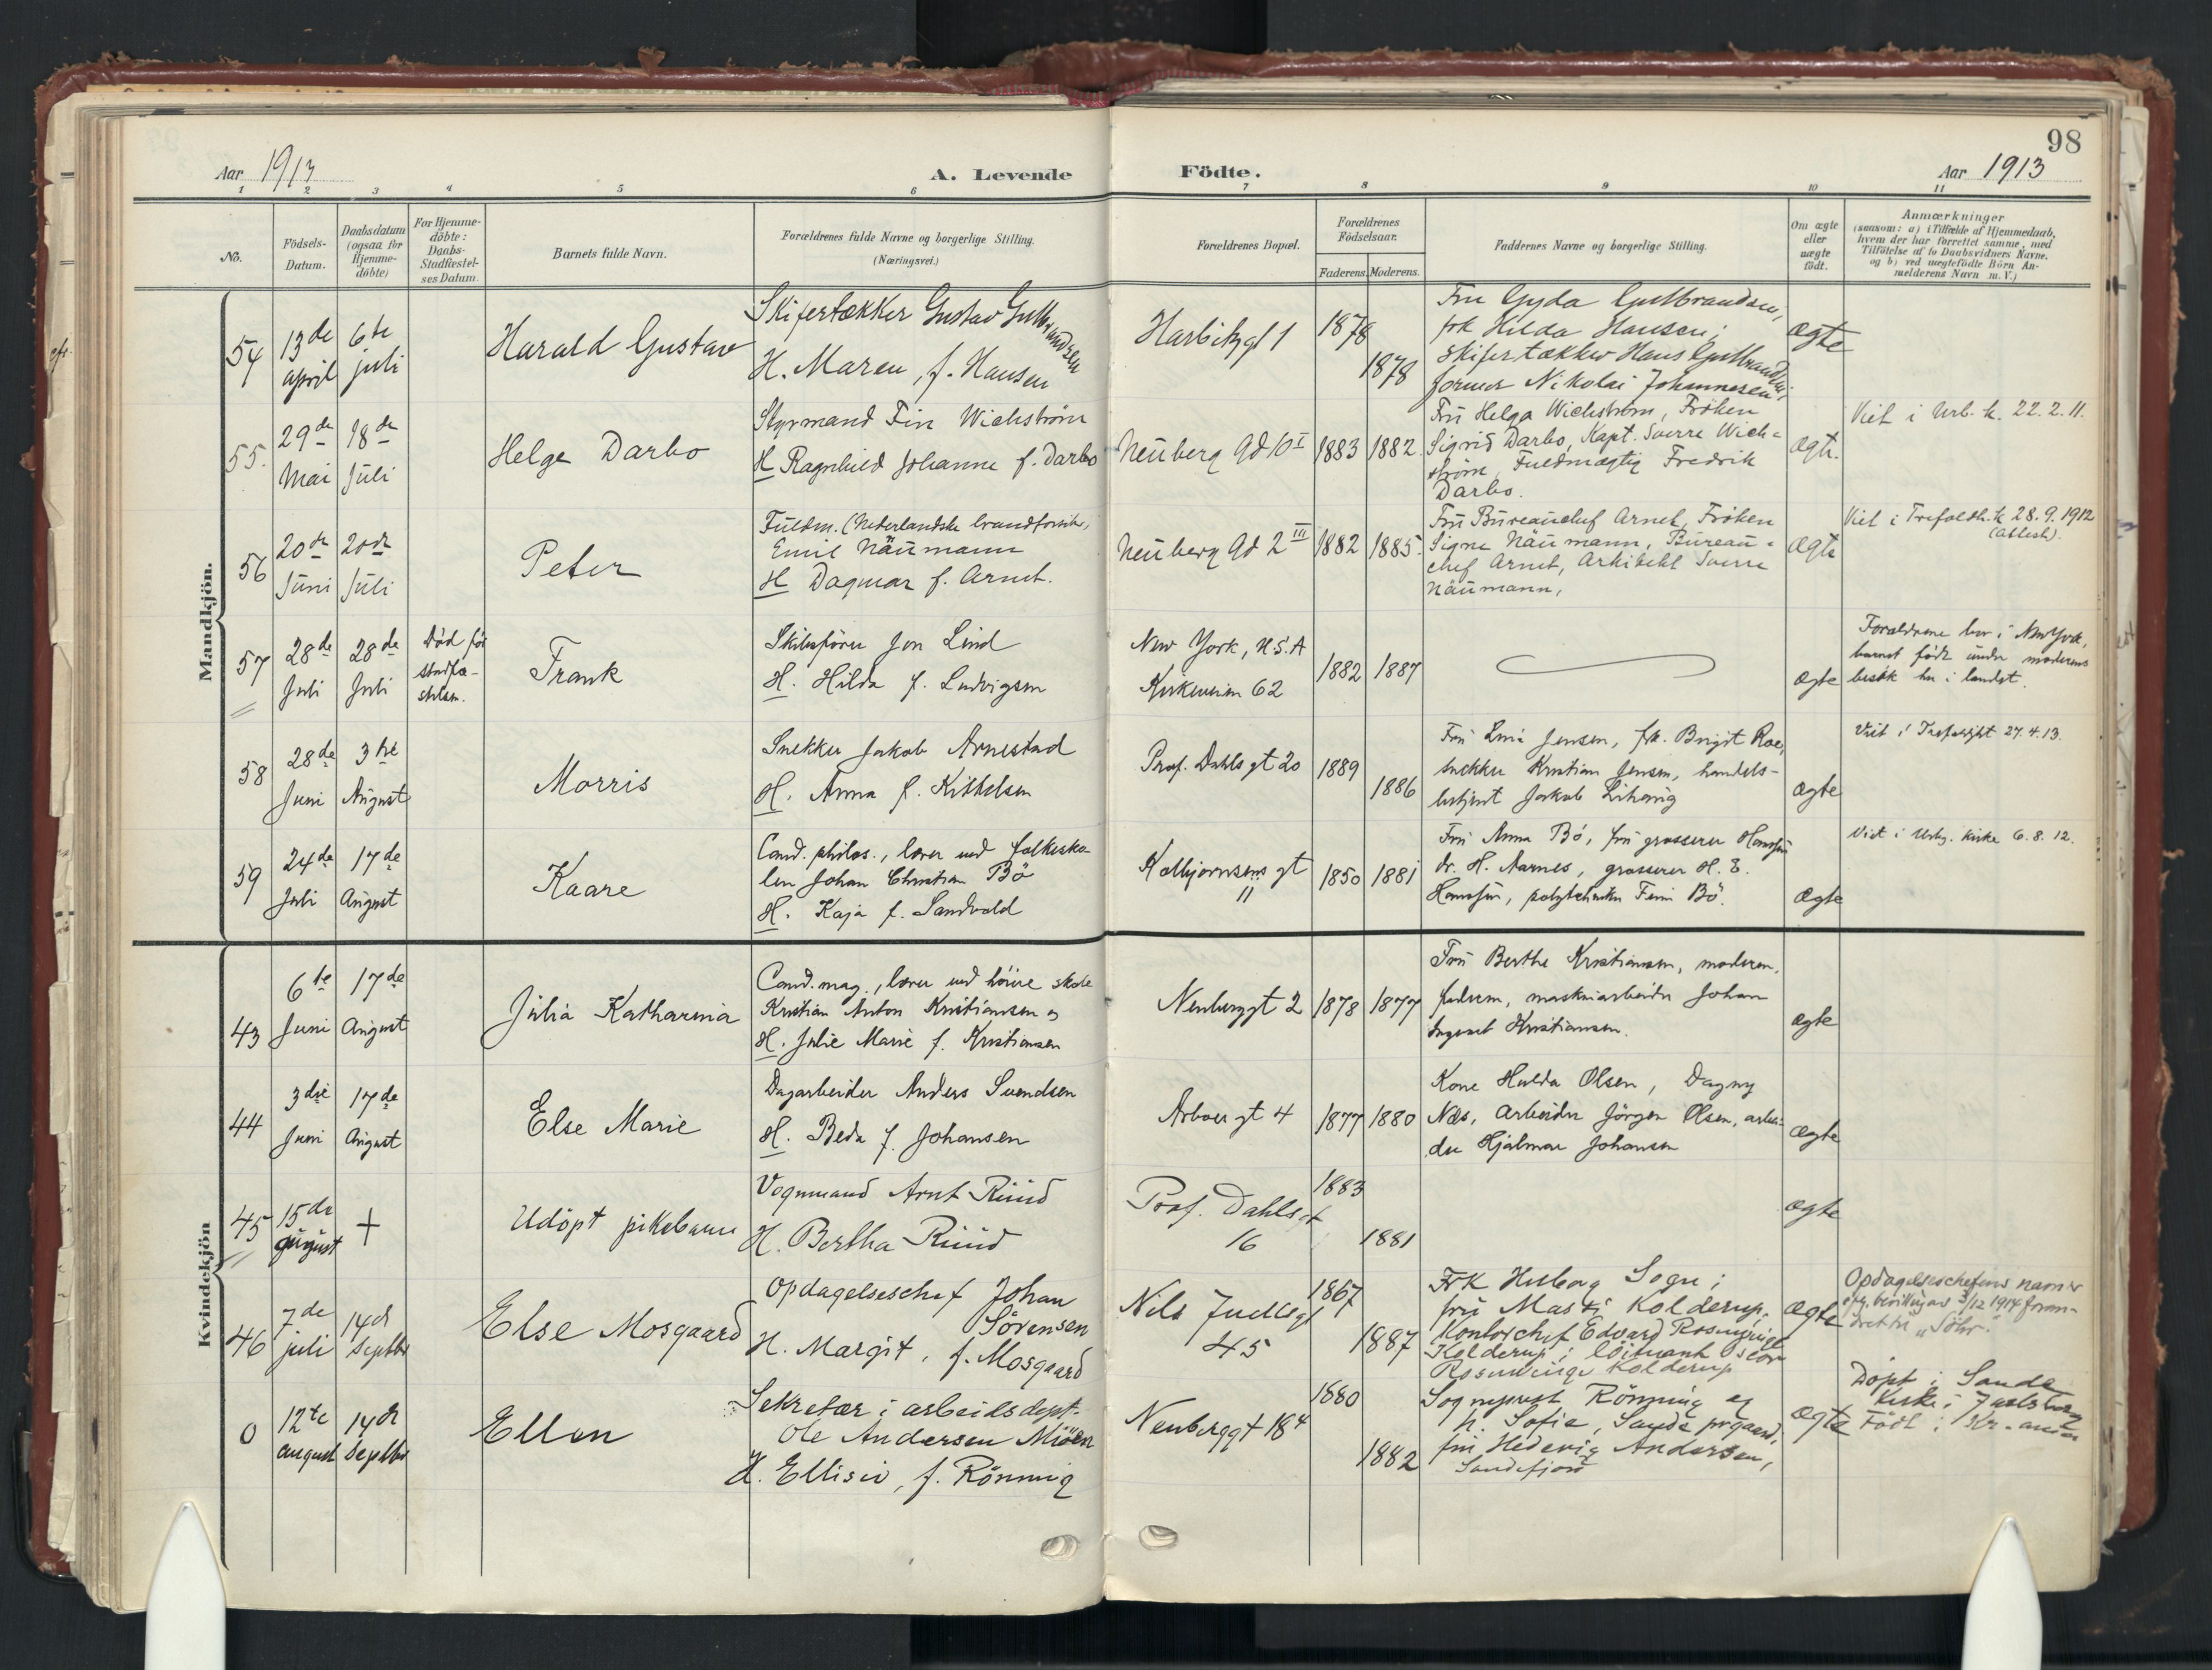 98
Aar 1913
A. Levende
Födte.
Aar 1913
1 2 3 4 5 6 7 8 9 10 11
No.
Födsels-
Datum.
Daabsdatum
(ogsaa for
Hjemme-
döbte)
For Hjemme-
döbte:
Daabs-
Stadfæstel-
ses Datum.
Barnets fulde Navn.
Forældrenes fulde Navne og borgerlige Stilling.
(Næringsvei.)
Forældrenes Bopæl.
Forældrenes
Födselsaar.
Faderens. Moderens.
Faddernes Navne og borgerlige Stilling.
Om ægte
eller
uægte
födt.
Anmærkninger
(saasom: a) i Tilfælde af Hjemmedaab,
hvem der har forrettet samme, med
Tilföielse af to Daabsvidners Navne,
og b) ved uægtefödte Börn An-
melderens Navn m. V.)
Mandkjön.
54
13de
april
6te
juli
Harald Gustav
Skifertækker Gustav Gulbrandsen
H. Maren, f. Hansen
Harbitzgt 1
1878
1878
Fru Gyda Gulbrandsen,
frk Hilda Hansen;
skifertækker Hans Gulbrandsen,
former Nikolai Johannesen,
ægte
55.
29de
Mai
18de
Juli
Helge Darbo
Styrmand Fin Wichström
H Ragnhild Johanne f. Darbo
Neuberg Gd 10 I
1883
1882
Fru Helga Wichström, Fröken
Sigrid Darbo, Kapt. Sverre Wich-
ström, Fuldmægtig Fredrik
Darbo.
ægte.
Viet i Urb. k. 22.2.11.
56
20de
Juni
20de
Juli
Peter
Fuldm. (Nederlandske brandforsikr.
Emil Naumann
H Dagmar f. Arnet.
Neuberg Gd 2 III
1882
1885.
Fru Bureauchef Arnet, Fröken
Signe Naumann, Bureau-
chef Arnet, Arkitekt Sverre
Naumann,
ægte
Viet i Trefoldh. k 28.9.1912
(attest).
57
28de
Juli
28de
Juli
Död för
stadfæ-
stelsen.
Frank
Skibsförer Jon Lind
H. Hilda f. Ludvigsen
New York, U.S.A
Kirkeveien 62
1882
1887
ægte
Forældrene bor i New York,
barnet födt under moderens
besök her i landet.
58
28de
Juni
3die
August
Morris
Snekker Jakob Arnestad
H. Anna f. Kittelsen
Prof. Dahls gt 20
1889
1886
Fru Lina Jensen, frk. Birgit Roe,
snekker Kristian Jensen, handels-
betjent Jakob
ægte
Viet i Trefoldight 27.4.13.
59
24de
Juli
17de
August
Kaare
Cand. philos., lærer ved folkesko-
len Johan Christian Bö
H. Kaja f. Sandvold
Kolbjørnsens gt
11
1850
1881
Fru Anna Bö, fru grosserer
dr. H. Aarnes, grosserer H. E.
polytekniker Finn Bö.
ægte
Viet i Urbg. kirke 6.8.12.
Kvindekjön
43
6te
Juni
17de
August
Julia Katharina
Cand. mag., lærer ved höiere skole
Kristian Anton Kristiansen og
H. Julie Marie f. Kristiansen
Neuberggt 2
1878
1877
Fru Berthe Kristiansen, moderen,
faderen, maskinarbeider Johan
Kristiansen.
ægte
44
3die
Juni
17de
August
Else Marie
Dagarbeider Anders Svendsen
H. Beda f. Johansen
Arboes gt 4
1877
1880
Kone Hulda Olsen, Dagny
Næs, Arbeider Jörgen Olsen, arbei-
der Hjalmar Johansen
ægte
45
15de
august
+
Udöpt pikebarn
Vognmand Arnt Ruud
H. Bertha Ruud
Prof. Dahlsgt
16
1883
1881
ægte
46
7de
juli
14de
Septbr
Else Mosgaard
Opdagelseschef Johan
Sörensen
H. Margit, f. Mosgaard
Nils Juelsgt
45
1867
1887
Frk Helborg Sogn;
fru Masti Kolderup;
Kontorchef Edvard Rosenvinge
Kolderup; löitnant Oscar
Rosenvinge Kolderup
ægte
Opdagelseschefens navn er
iflg. bevilling av 3/12 1914 foran-
dret til "Söhr".
0
12te
august
14de
Septbr
Ellen
Sekretær i arbeidsdept.
Ole Andersen Miöen
H. Ellisiv, f. Rönning
Neuberggt 18 4
1880
1882
Sogneprest Rönning og
h. Sofie, Sande prgaard,
fru Hedevig Andersen,
Sandefjord
ægte
Döpt i Sande
Kirke i Jarlsberg
Födt i